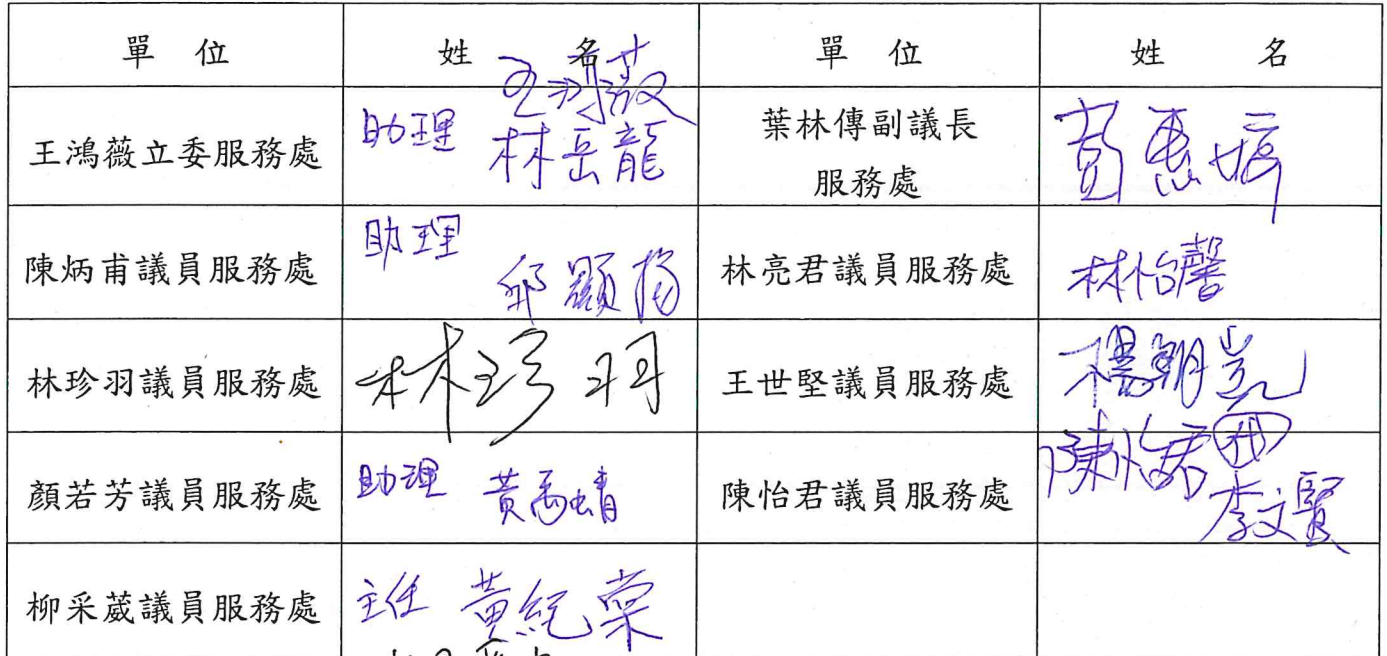 單 位 姓 名 單 位 姓 名
王鴻薇立委服務處 王鴻薇 助理 林岳龍 葉林傳副議長 服務處 黃惠
陳炳甫議員服務處 助理 邱顯揚 林亮君議員服務處 林怡馨
林珍羽議員服務處 林珍羽 王世堅議員服務處 楊明嵩
顏若芳議員服務處 助理 黃禹晴 陳怡君議員服務處 陳怡君 李文賢
柳采葳議員服務處 主任 黃紀棠